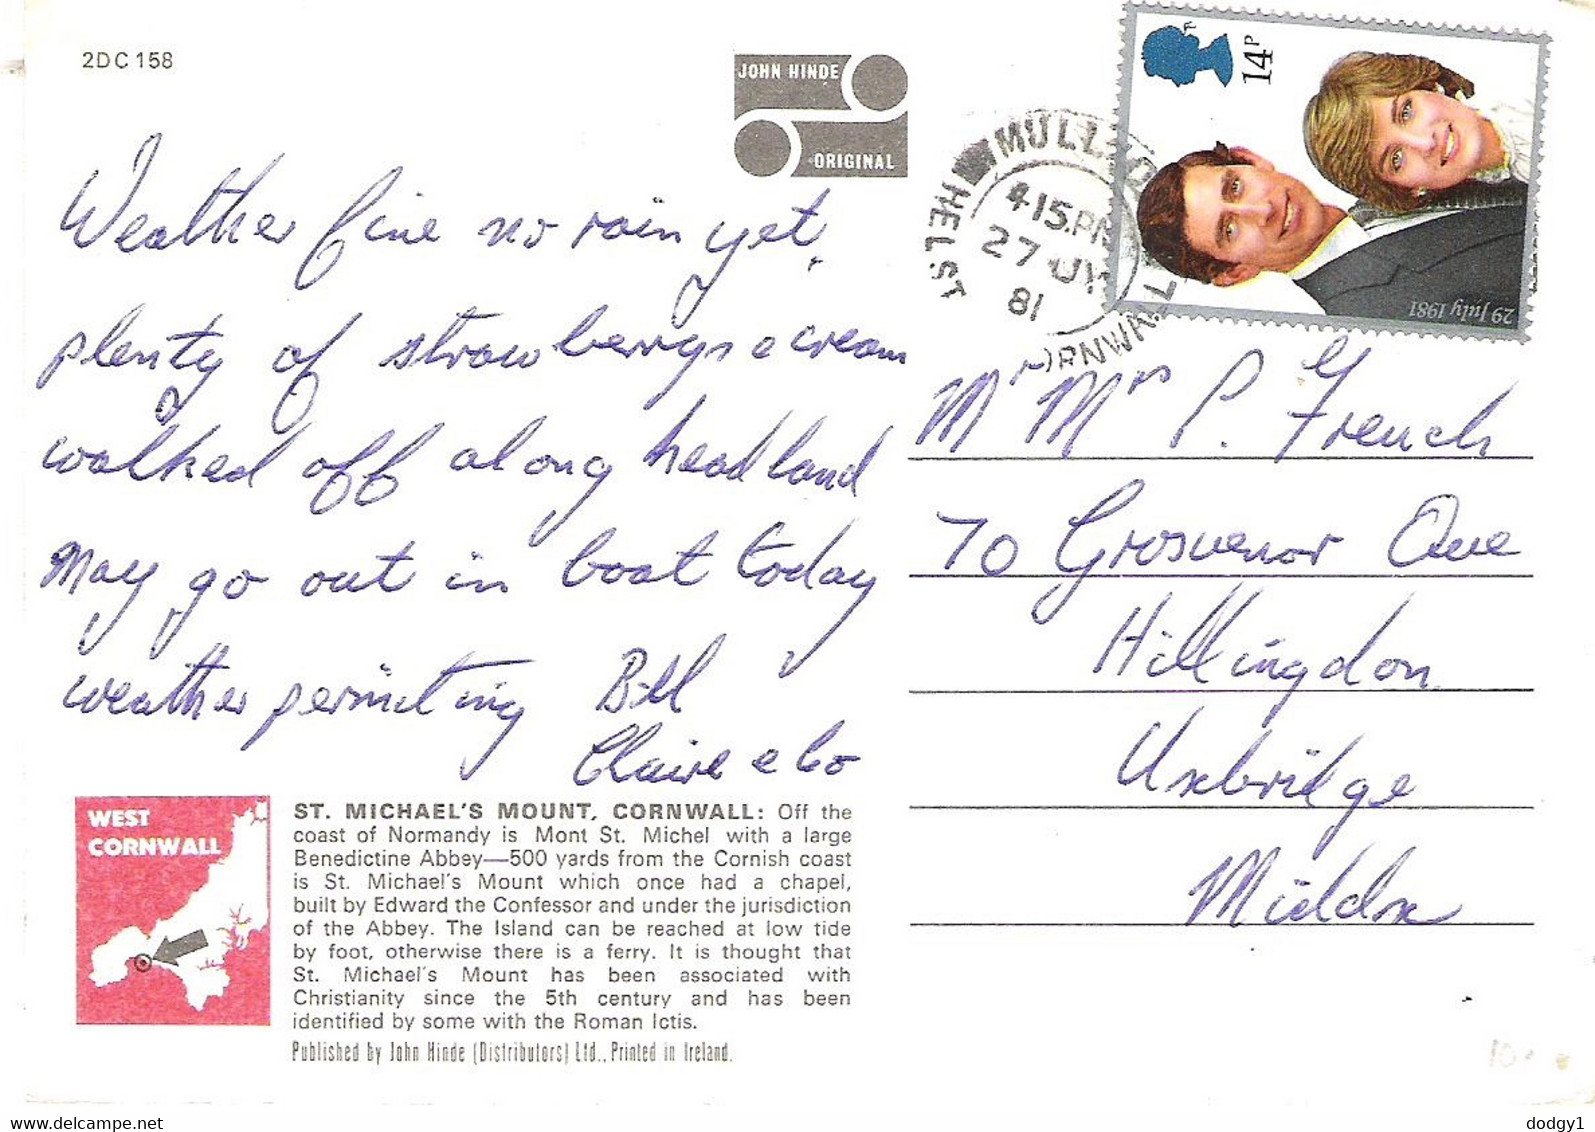 2DC158
JOHN HINDE
ORIGINAL
14P
29 July 1981
MULLION
HELSTON
CORNWALL
4 15 PM
27 JY
81
Weather fine no rain yet,
plenty of strawberrys & cream
walked off along headland
May go out in boat today
weather permitting Bill
Claire & Co
Mr Mrs P. French
70 Grosvenor Ave
Hillingdon
Uxbridge
Middx
WEST
CORNWALL
ST. MICHAEL'S MOUNT, CORNWALL: Off the
coast of Normandy is Mont St. Michel with a large
Benedictine Abbey—500 yards from the Cornish coast
is St. Michael's Mount which once had a chapel,
built by Edward the Confessor and under the jurisdiction
of the Abbey. The Island can be reached at low tide
by foot, otherwise there is a ferry. It is thought that
St. Michael's Mount has been associated with
Christianity since the 5th century and has been
identified by some with the Roman Ictis.
Published by John Hinde (Distributors) Ltd., Printed in Ireland.
www.delcampe.net
dodgy1